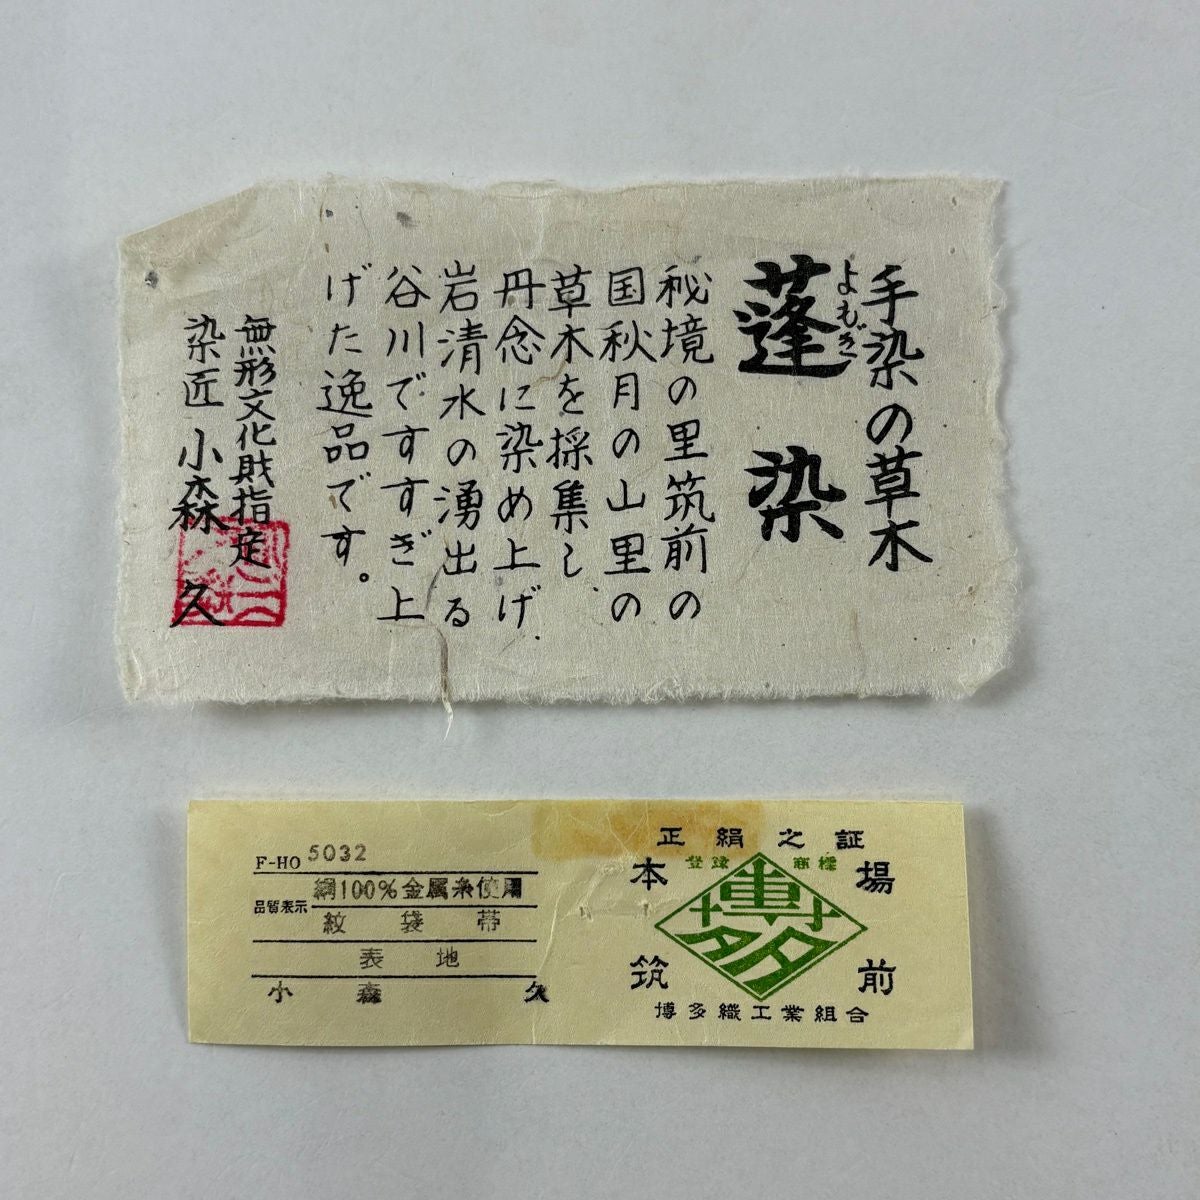 手染の草木
よもぎ
蓬染
秘境の里筑前の
国秋月の山里の
草木を採集し
丹念に染め上げ
岩清水の湧出る
谷川ですすぎ上
げた逸品です。
無形文化財指定
染匠 小森 久
F-HO 5032
品質表示 絹100%金属糸使用
紋袋帯
表地
小森 久
正絹之証
登録商標
本場
博多
筑前
博多織工業組合